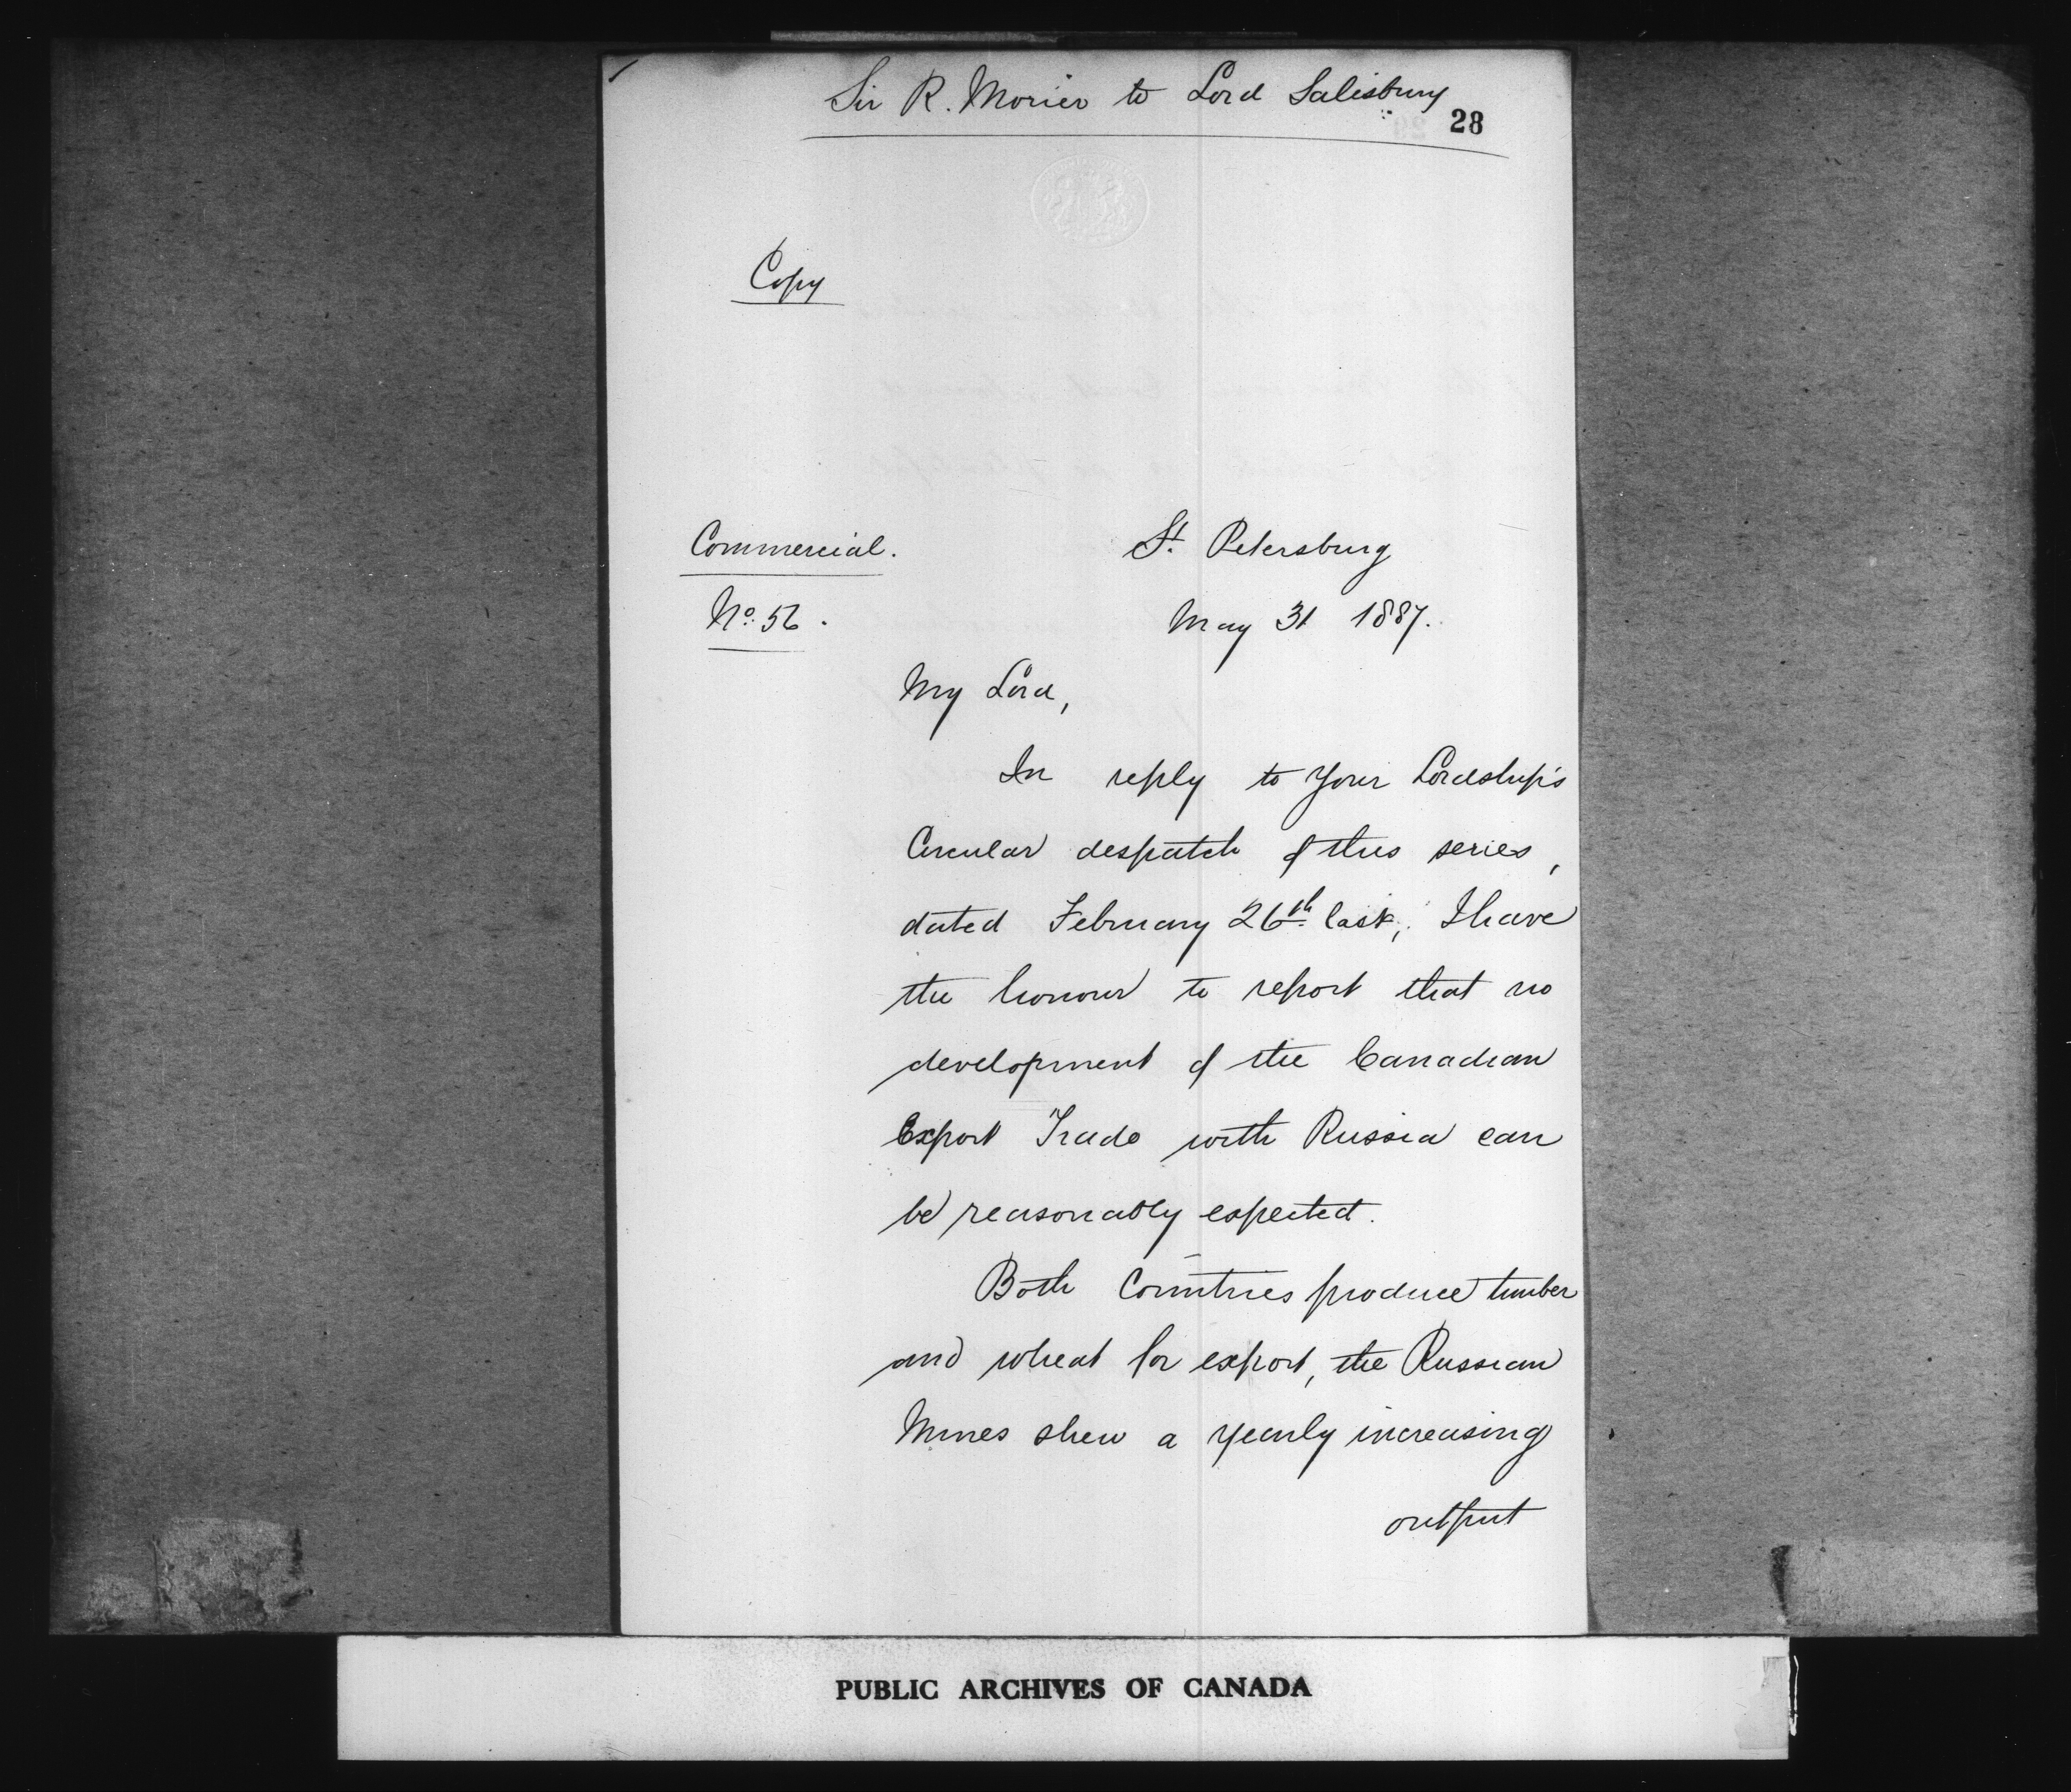 Sir R. Morier to Lord Salisbury
28
Copy
Commercial.
No. 56.
St. Petersburg
May 31 1887.
My Lord,
In reply to Your Lordship's
Circular despatch of this series,
dated February 26th last, I have
the honour to report that no
development of the Canadian
Export Trade with Russia can
be reasonably expected.
Both Countries produce timber
and wheat for export, the Russian
Mines shew a yearly increasing
output
PUBLIC ARCHIVES OF CANADA